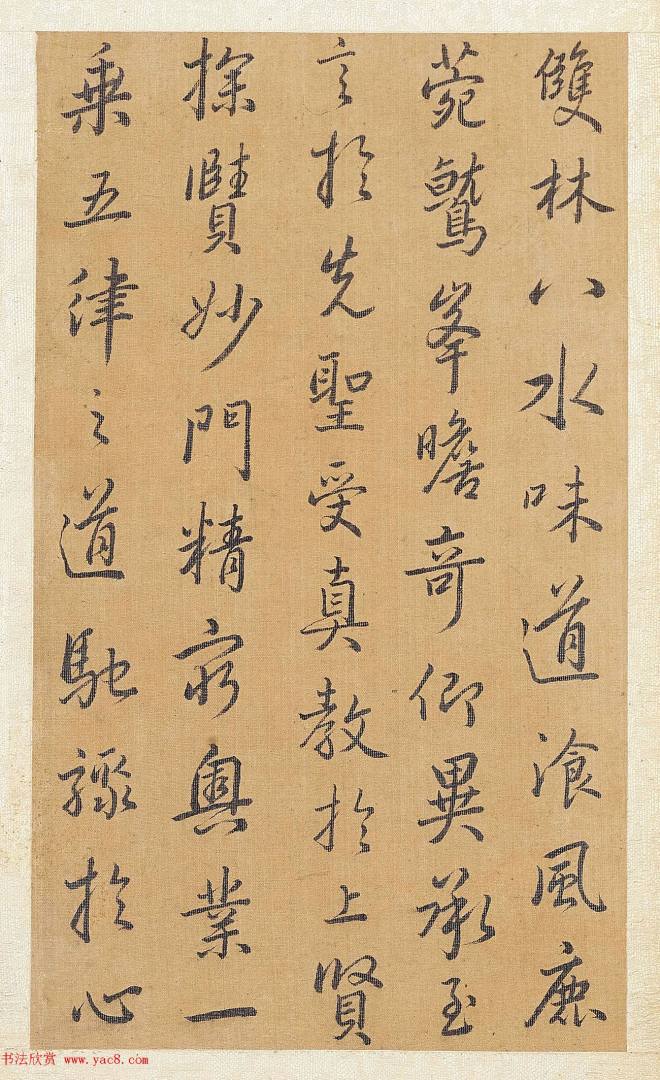 雙林八水味道飡風鹿
菀鷲峯瞻奇仰異承至
言於先聖受真教於上賢
探賾妙門精窮奧業一
乘五律之道馳驟於心
书法欣赏 www.yac8.com